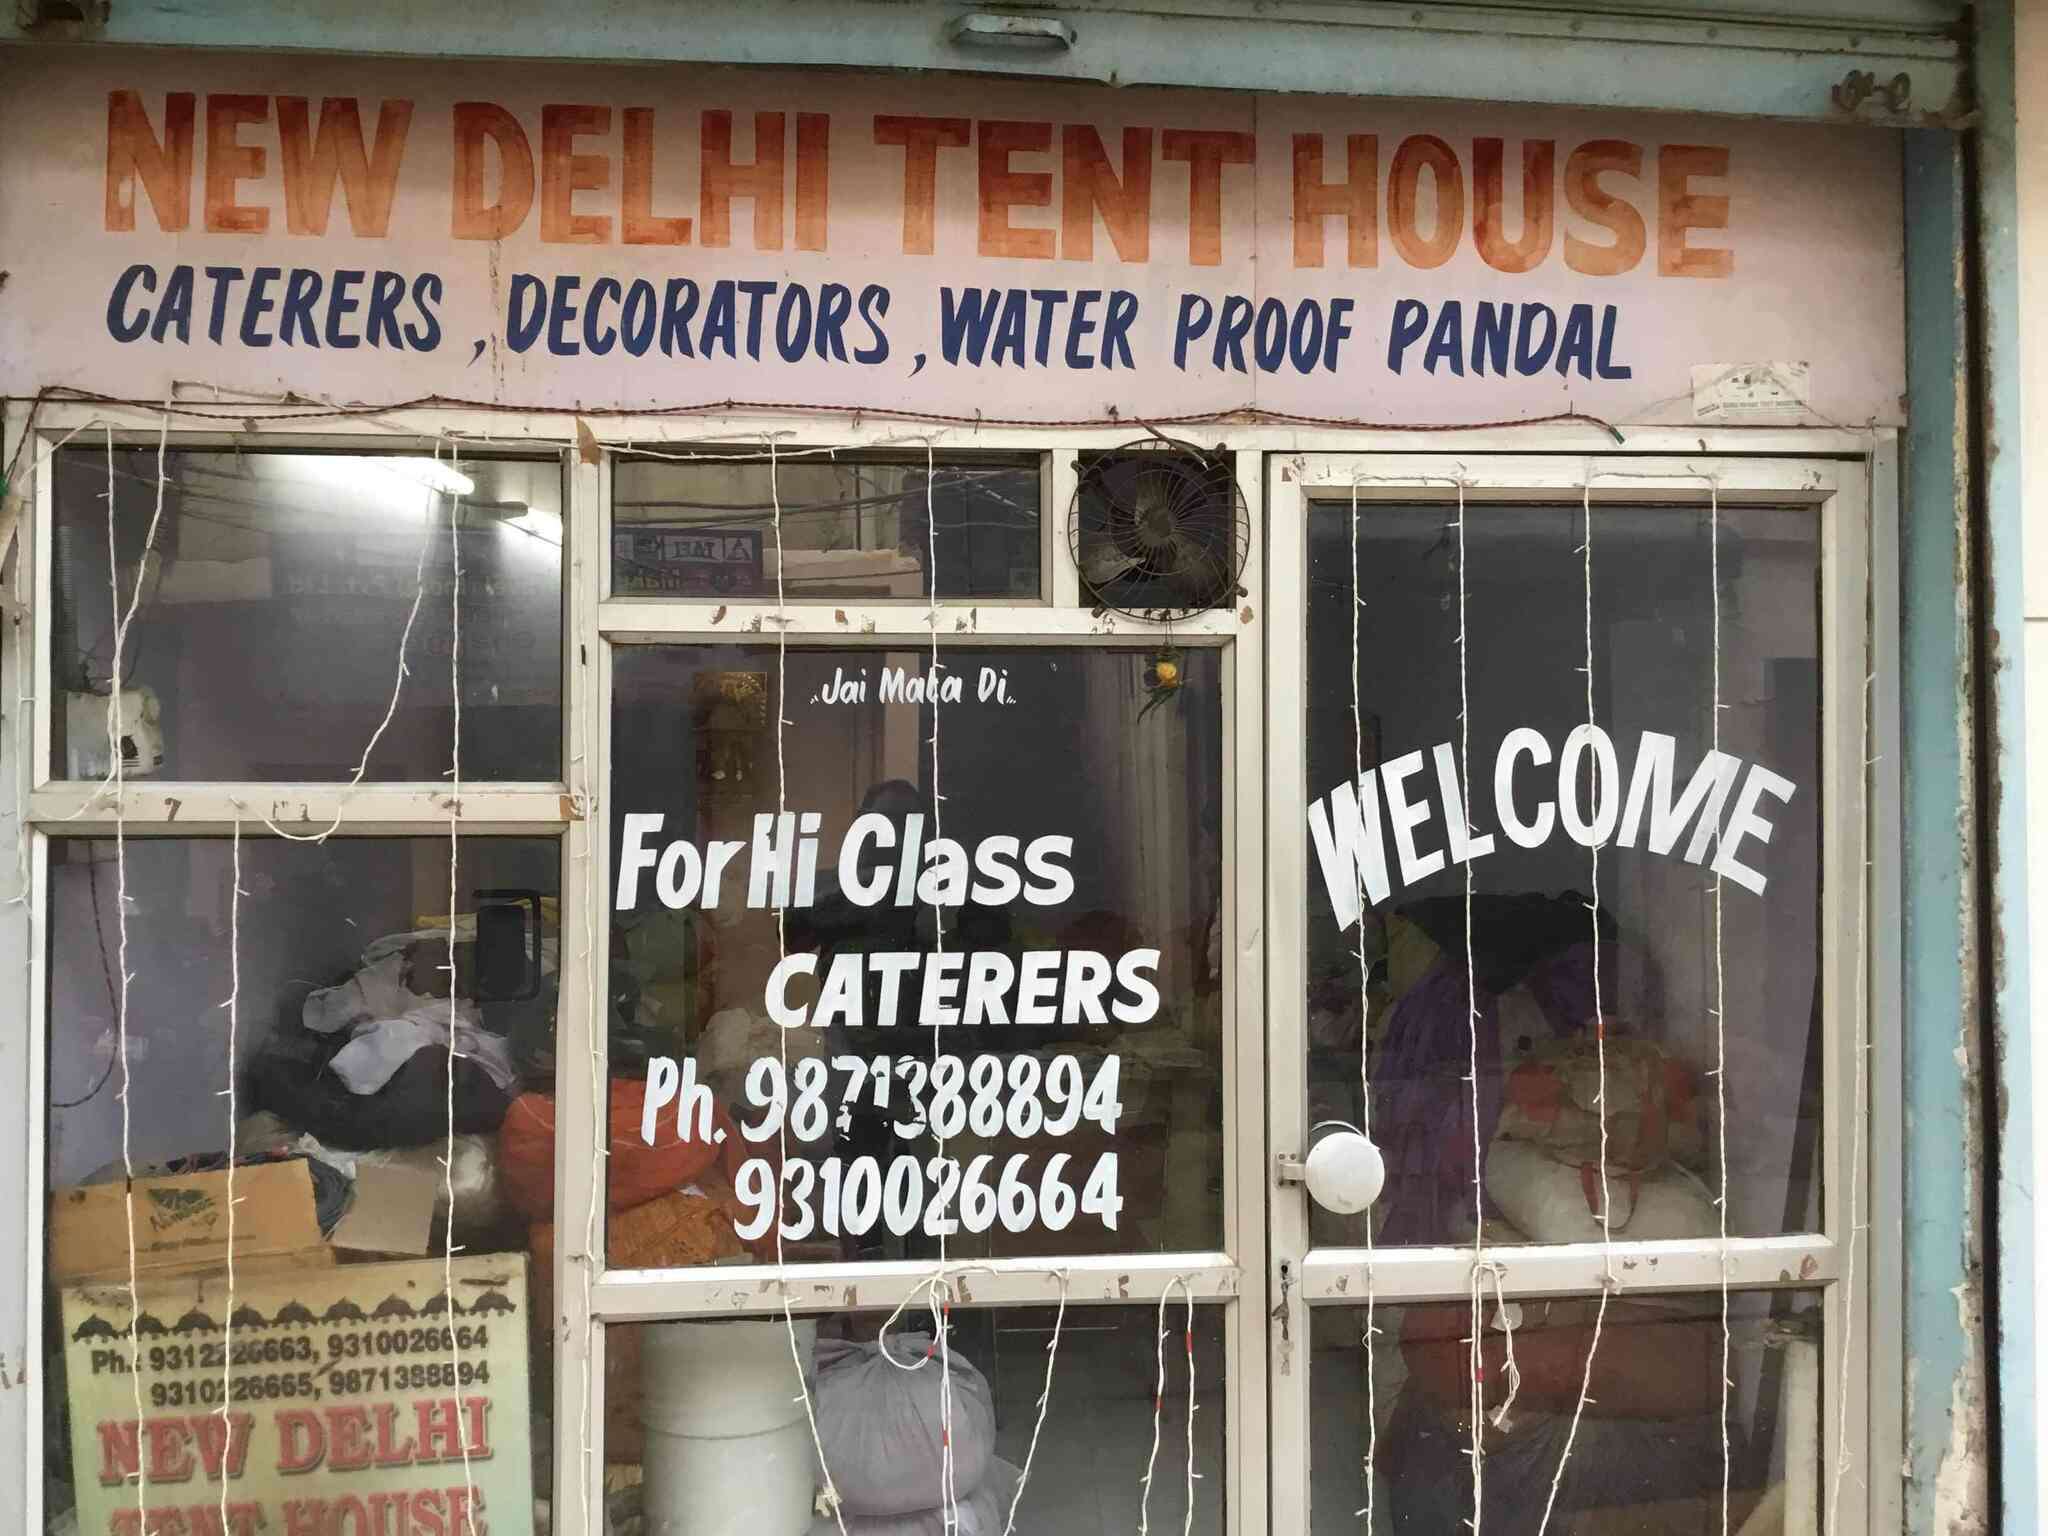 NEW DELHI TENT HOUSE
CATERERS, DECORATORS, WATER PROOF PANDAL
"Jai Mata Di"
For Hi Class
CATERERS
Ph. 9871388894
9310026664
WELCOME
Ph.: 9312226663, 9310026664
9310226665, 9871388894
NEW DELHI
TENT HOUSE